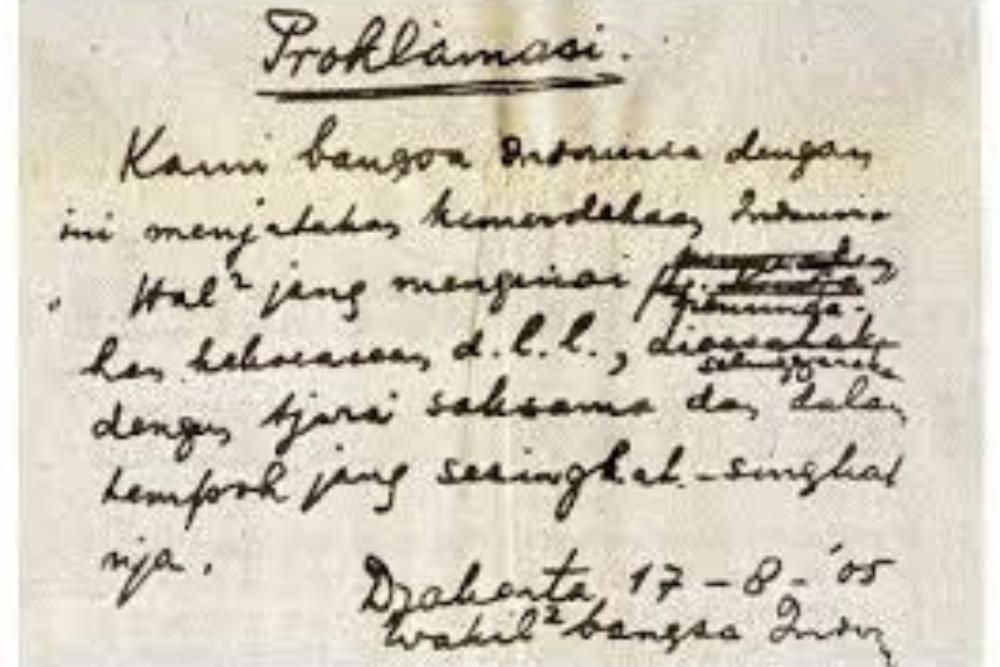 Proklamasi.
Kami bangsa Indonesia dengan
ini menjatakan kemerdekaan Indonesia
Hal² jang mengenai
pemindahan
kekoeasaan d.l.l.,
diselenggarakan
dengan tjara saksama dan dalam
tempoh jang sesingkat-singkat
nja.
Djakarta, 17 - 8 - '05
Wakil² bangsa Indon